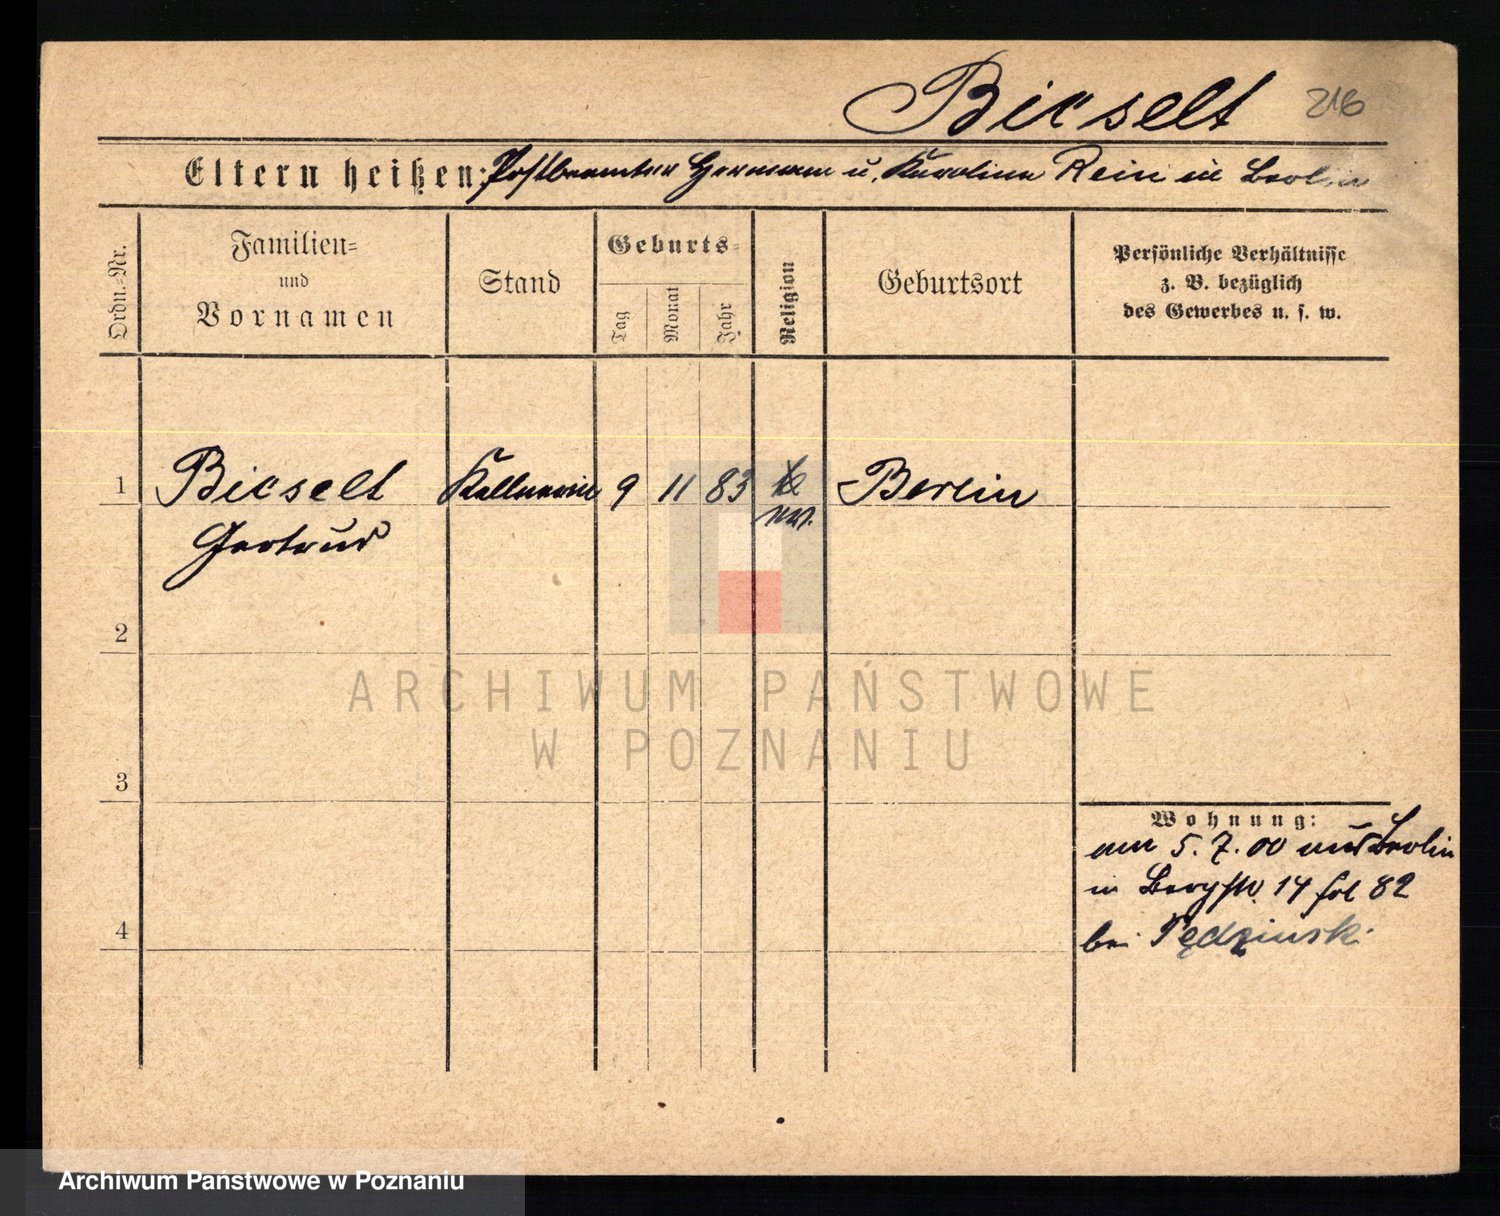 Bieselt 216
Eltern heißen: Postbeamter Hermann u. Karoline Rein in Berlin
Ordn.-Nr.
Familien-
und
Vornamen
Stand
Geburts-
Tag
Monat
Jahr
Religion
Geburtsort
Persönliche Verhältnisse
z. B. bezüglich
des Gewerbes u. s. w.
1 Bieselt Kellnerin 9 11 83 Berlin
ev.
Gertrud
2
ARCHIWUM PAŃSTWOWE
W POZNANIU
3
Wohnung:
am 5. 7. 00 aus Berlin
in Bergstr. 14 fol 82
4
bei Pędzinski
Archiwum Państwowe w Poznaniu